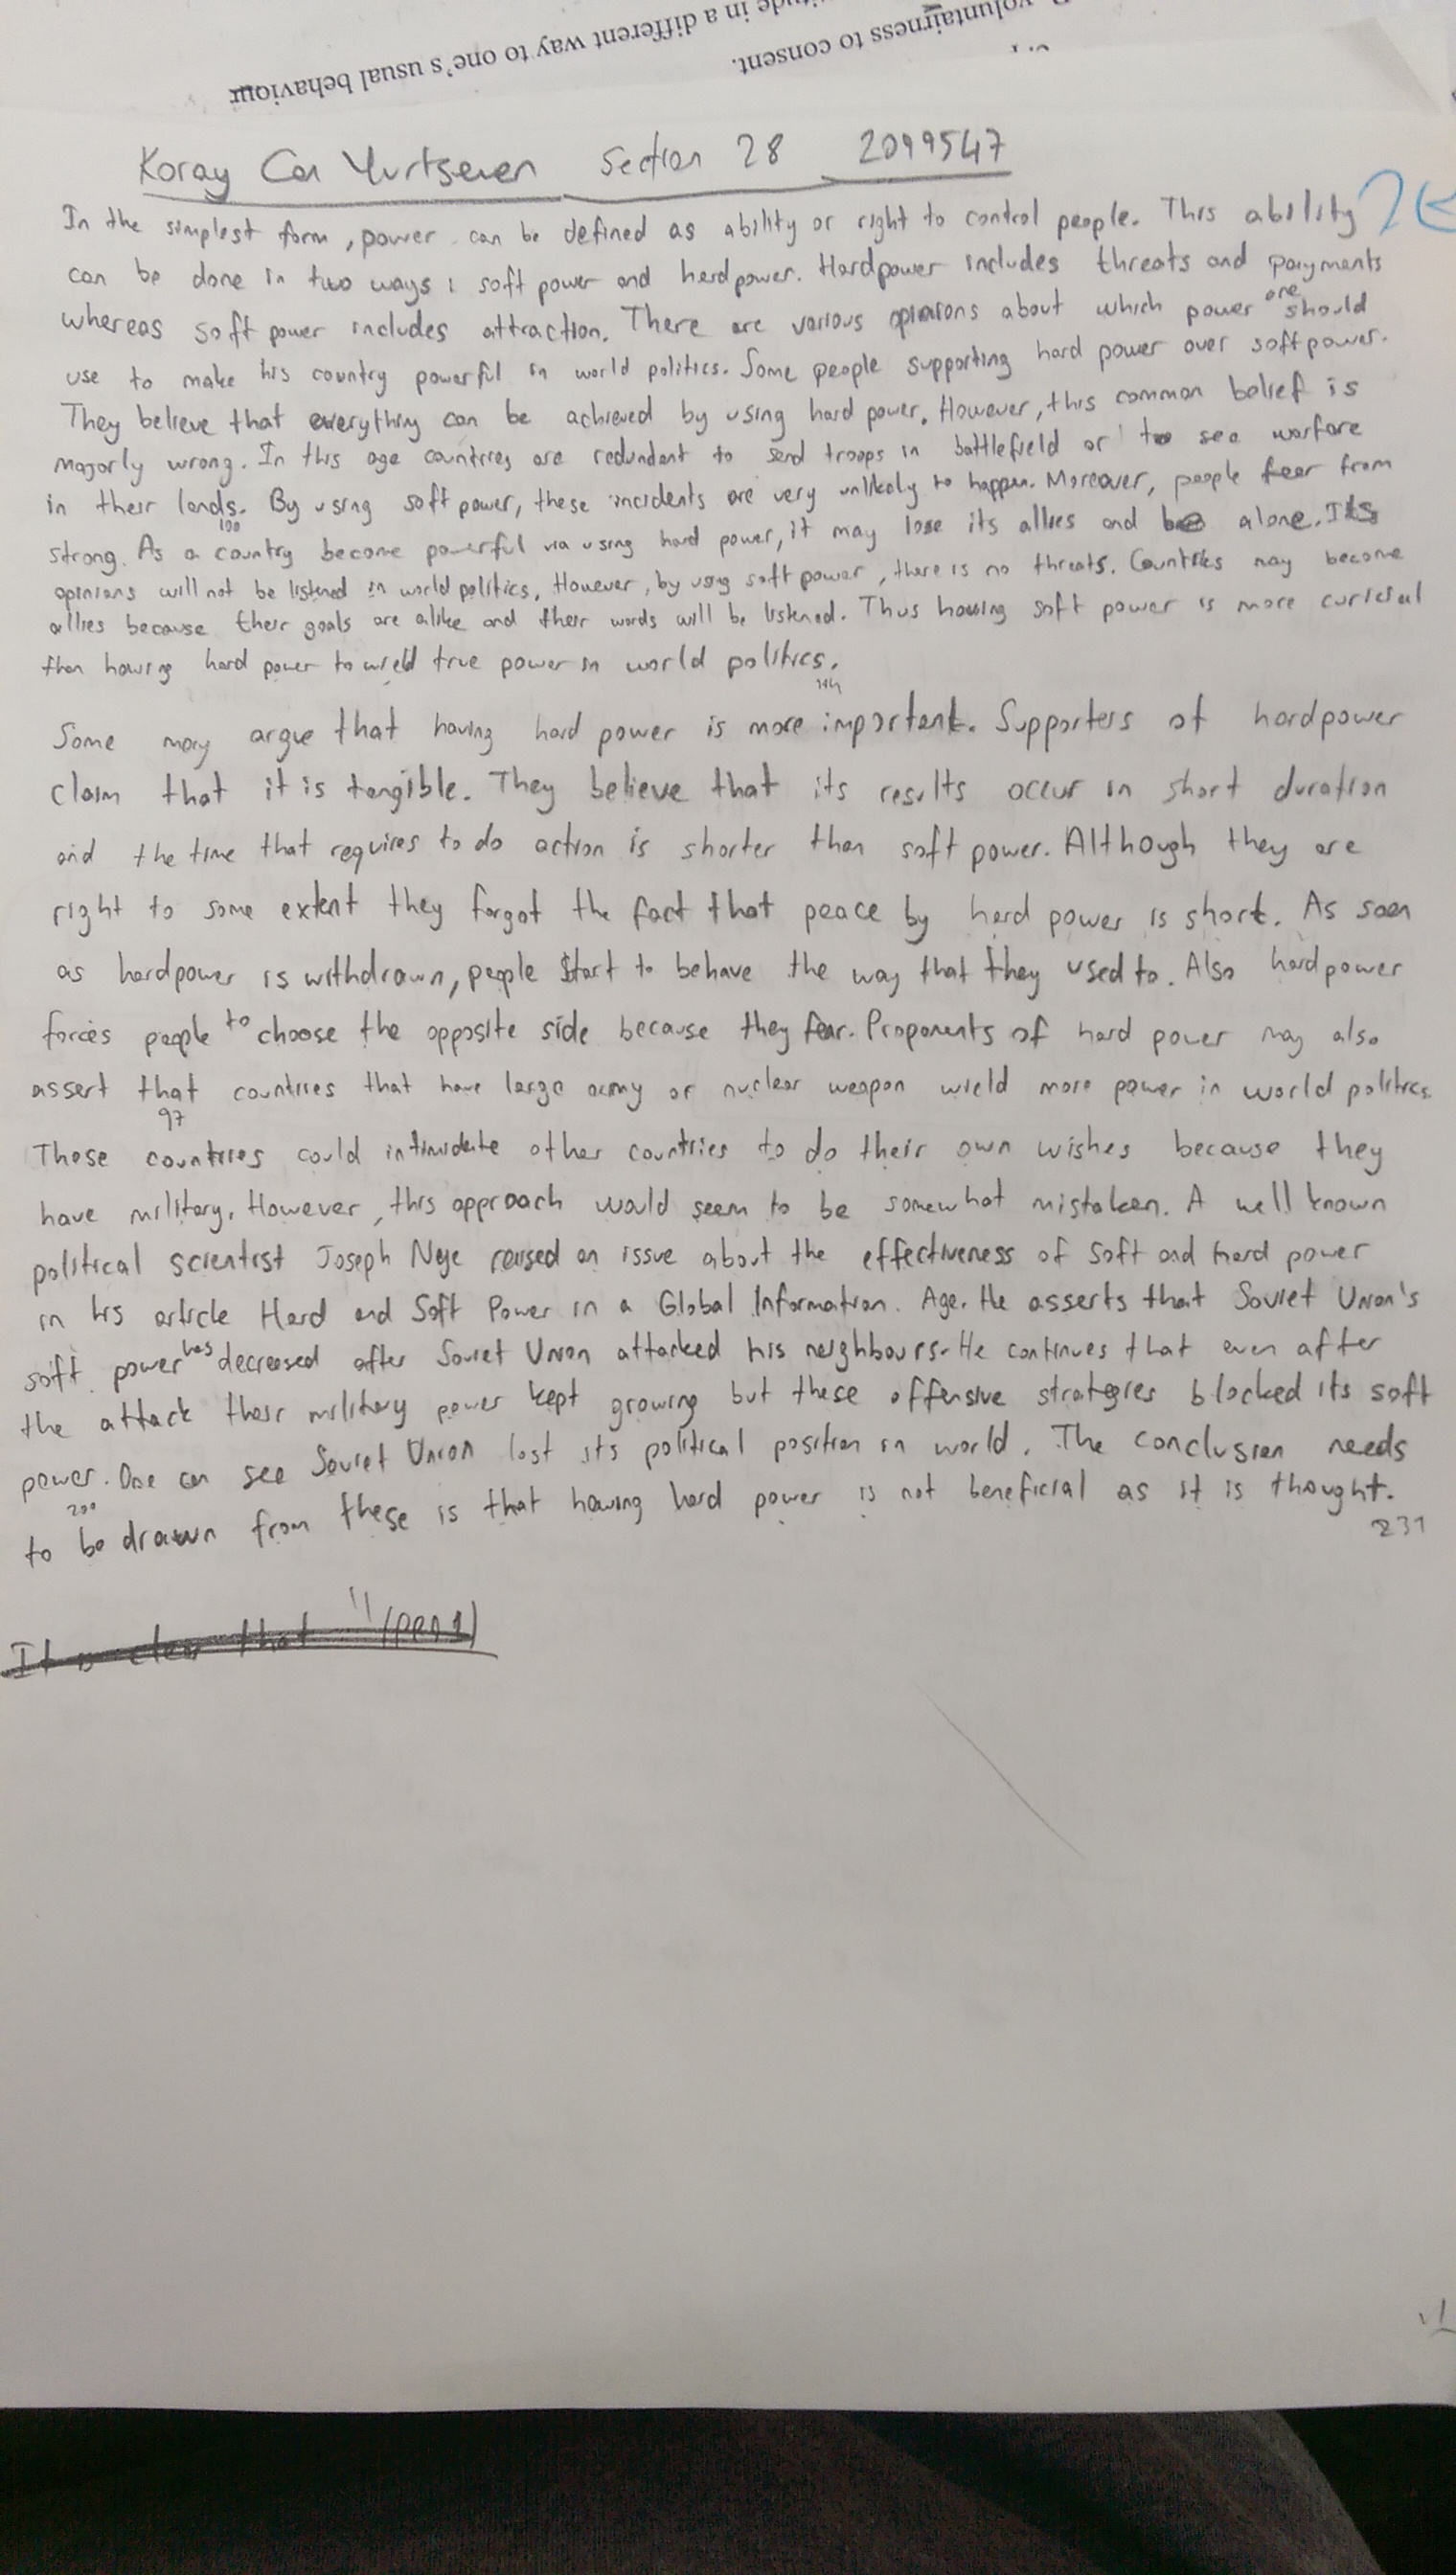 voluntairness to consent.
in a different way to one's usual behaviour
Koray Can Yurtseven Section 28 2099547
In the simplest form, power can be defined as ability or right to control people. This ability
can be done in two ways: soft power and hardpower. Hardpower includes threats and payments
whereas soft power includes attraction. There are various opinions about which power one should
use to make his country powerful in world politics. Some people supporting hard power over softpower.
They believe that everything can be achieved by using hard power. However, this common belief is
majorly wrong. In this age countries are redundant to send troops in battlefield or to see warfare
in their lands. By using soft power, these incidents are very unlikely to happen. Moreover, people fear from
100
strong. As a country become powerful via using hard power, it may lose its allies and be alone. Its
opinions will not be listened in world politics. However, by using soft power, there is no threats. Countries may become
allies because their goals are alike and their words will be listened. Thus having soft power is more curicial
than having hard power to wield true power in world politics.
Some may argue that having hard power is more important. Supporters of hardpower
claim that it is tangible. They believe that its results occur in short duration
and the time that requires to do action is shorter than soft power. Although they are
right to some extent they forgot the fact that peace by hard power is short. As soon
as hardpower is withdrawn, people start to behave the way that they used to. Also hardpower
forces people to choose the opposite side because they fear. Proponents of hard power may also
assert that countries that have large army or nuclear weapon wield more power in world politics.
97
These countries could intimidate other countries to do their own wishes because they
have military. However, this approach would seem to be somewhat mistaken. A well known
political scientist Joseph Nye raised an issue about the effectiveness of soft and hard power
in his article Hard and Soft Power in a Global Information Age. He asserts that Soviet Union's
soft power has decreased after Soviet Union attacked his neighbours. He continues that even after
the attack their military power kept growing but these offensive strategies blocked its soft
power. One can see Soviet Union lost its political position in world. The conclusion needs
200
to be drawn from these is that having hard power is not beneficial as it is thought.
231
It is clear that " (per 1)